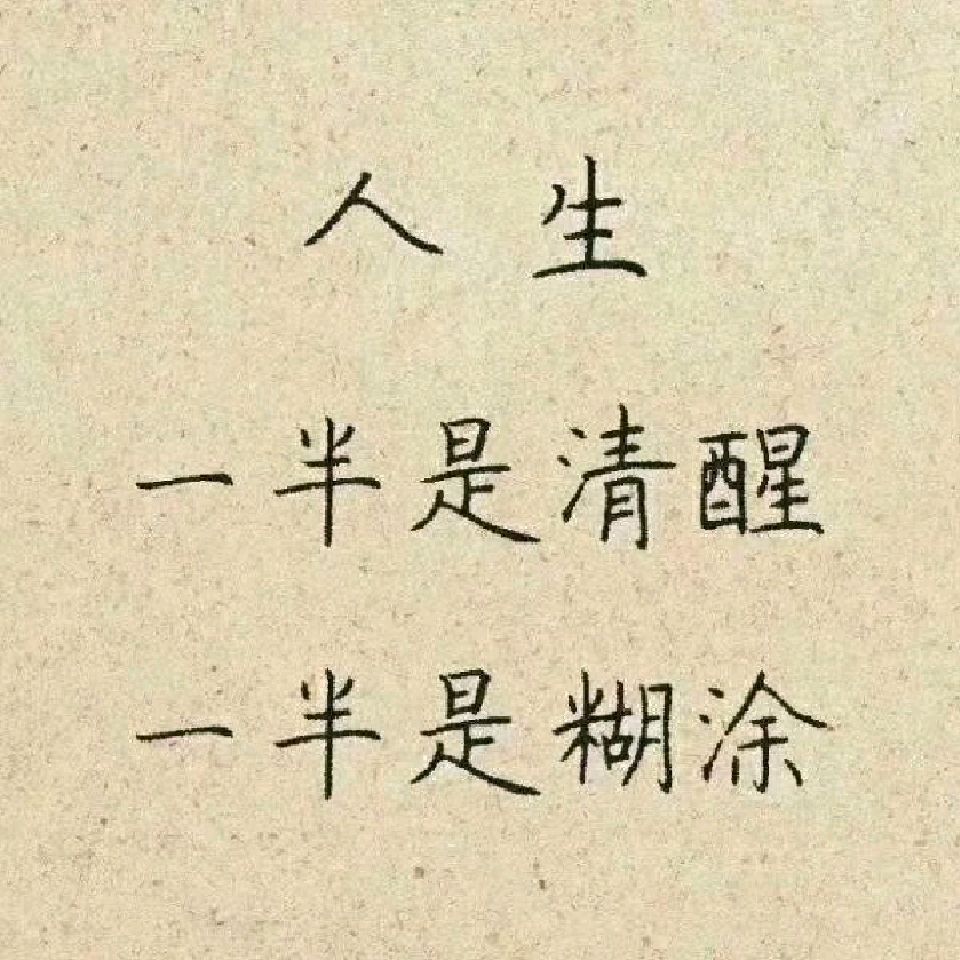 人生
一半是清醒
一半是糊涂